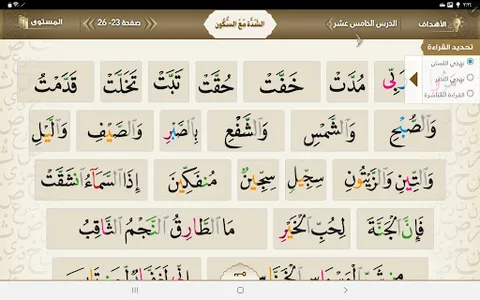 الأهداف الدرس الخامس عشر الشَّدَّة مَعَ السُّكُون صفحة 23- 26 المستوى
تحديد القراءة
تهجي اللسان
تهجي النظر
القراءة المباشرة
رَبِّي مُدَّتْ خَفَّتْ حُقَّتْ تَبَّتْ تَخَلَّتْ قَدَّمْتُ
وَٱلصُّبْحِ وَٱلشَّمْسِ وَٱلشَّفْعِ بِٱلصَّبْرِ وَٱلصَّيْفِ وَٱلَّيْلِ
وَٱلتِّينِ وَٱلزَّيْتُونِ سِجِّيلٍ سِجِّينٌ مُنفَكِّينَ إِذَا ٱلسَّمَآءُ ٱنشَقَّتْ
فَإِنَّ ٱلْجَنَّةَ لِحُبِّ ٱلْخَيْرِ مَا ٱلطَّارِقُ ٱلنَّجْمُ ٱلثَّاقِبُ